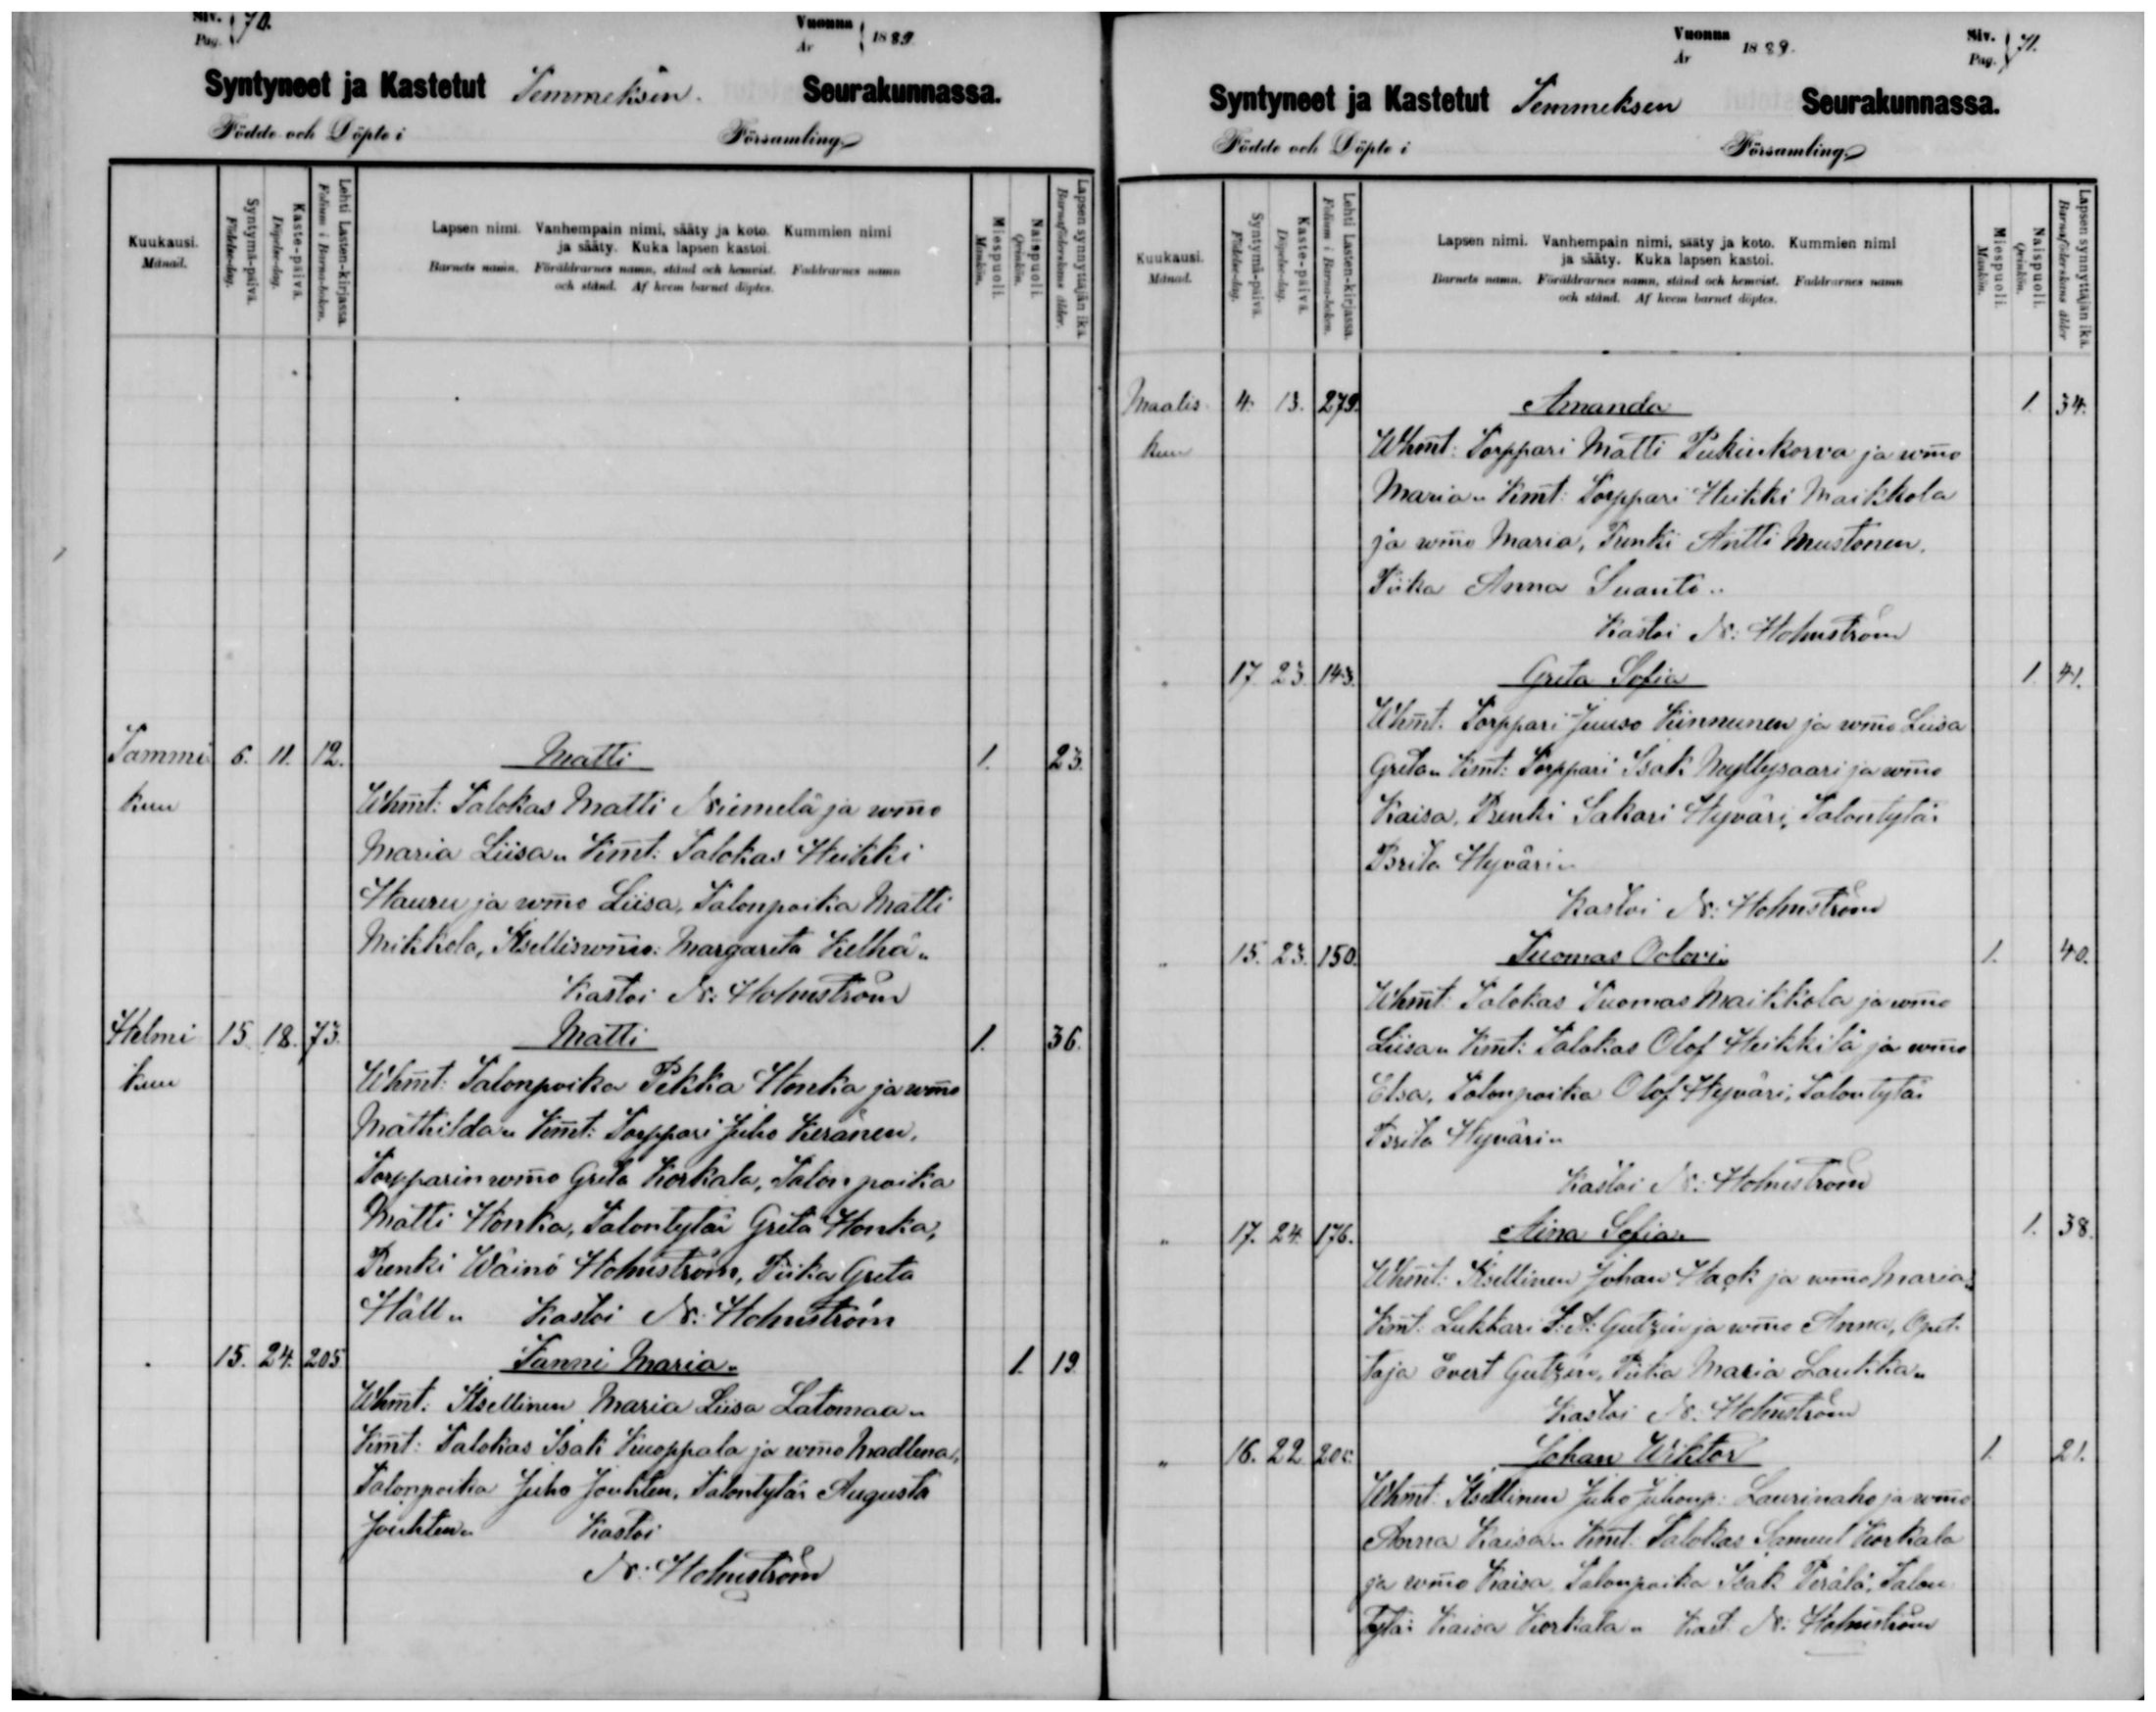 Siv. 70.
Pag.
Vuonna 1889.
År
Syntyneet ja Kastetut Temmeksen Seurakunnassa.
Födde och Döpte i Församling
Kuukausi.
Månad.
Syntymä-päivä.
Födelse-dag.
Kaste-päivä.
Döpelse-dag.
Lehti Lasten-kirjassa.
Folium i Barna-boken.
Lapsen nimi. Vanhempain nimi, sääty ja koto. Kummien nimi
ja sääty. Kuka lapsen kastoi.
Barnets namn. Föräldrarnes namn, stånd och hemvist. Faddrarnes namn
och stånd. Af hvem barnet döptes.
Miespuoli.
Mankön.
Naispuoli.
Qvinkön.
Lapsen synnyttäjän ikä.
Barnaföderskans ålder.
Tammi 6. 11. 12. Matti 1. 23.
kuu Whm̄t: Talokas Matti Niemelä ja wm̄o
Maria Liisa„ Km̄t: Talokas Heikki
Hauru ja wm̄o Liisa, Talonpoika Matti
Mikkola, Itselliswm̄o: Margareta Kelhä„
Kastoi N: Holmström
Helmi 15. 18. 73. Matti 1. 36.
kuu Whm̄t: Talonpoika Pekka Honka ja wm̄o
Mathilda„ Km̄t: Torppari Juho Keränen,
Torpparinwm̄o Greta Korkala, Talonpoika
Matti Honka, Talontytär Greta Honka,
Renki Wäinö Holmström, Piika Greta
Häll„ Kastoi N: Holmström
„ 15. 24. 205 Fanni Maria„ 1. 19.
Whm̄t: Itsellinen Maria Liisa Latomaa„
Km̄t: Talokas Isak Knoppala ja wm̄o Madlena,
Talonpoika Juho Jouhten, Talontytär Augusta
Jouhten„ Kastoi
N: Holmström
Vuonna 1889.
År
Siv. 71.
Pag.
Syntyneet ja Kastetut Temmeksen Seurakunnassa.
Födde och Döpte i Församling
Kuukausi.
Månad.
Syntymä-päivä.
Födelse-dag.
Kaste-päivä.
Döpelse-dag.
Lehti Lasten-kirjassa.
Folium i Barna-boken.
Lapsen nimi. Vanhempain nimi, sääty ja koto. Kummien nimi
ja sääty. Kuka lapsen kastoi.
Barnets namn. Föräldrarnes namn, stånd och hemvist. Faddrarnes namn
och stånd. Af hvem barnet döptes.
Miespuoli.
Mankön.
Naispuoli.
Qvinkön.
Lapsen synnyttäjän ikä.
Barnaföderskans ålder
Maalis 4. 13. 279. Amanda 1. 34.
kuu Whm̄t: Torppari Matti Pukinkorva ja wm̄o
Maria„ Km̄t: Torppari Heikki Maikkola
ja wm̄o Maria, Renki Antti Mustonen,
Piika Anna Suanti„
Kastoi N: Holmström
„ 17. 23. 143. Greta Sofia 1. 41.
Whm̄t: Torppari Juuso Kinnunen ja wm̄o Liisa
Greta„ Km̄t: Torppari Isak Myllysaari ja wm̄o
Kaisa, Renki Sakari Hyväri, Talontytär
Brita Hyväri„
Kastoi N: Holmström
„ 15. 23. 150. Tuomas Oolovi„ 1. 40.
Whm̄t: Talokas Tuomas Maikkola ja wm̄o
Liisa„ Km̄t: Talokas Olof Heikkilä ja wm̄o
Elsa, Talonpoika Olof Hyväri, Talontytär
Brita Hyväri„
Kastoi N: Holmström
„ 17. 24. 176. Aina Sofia„ 1. 38.
Whm̄t: Itsellinen Johan Hack ja wm̄o Maria„
Km̄t: Lukkari J: A: Gutzén ja wm̄o Anna, Opet-
taja Evert Gutzén, Piika Maria Laukka„
Kastoi N: Holmström
„ 16. 22. Johan Wiktor 1. 21.
Whm̄t: Itsellinen Juho Juhonp: Laurinaho ja wm̄o
Anna Kaisa„ Km̄t: Talokas Samuel Korkala
ja wm̄o Kaisa, Talonpoika Isak Perälä, Talon
tytär Kaisa Korkala„ Kast. N: Holmström